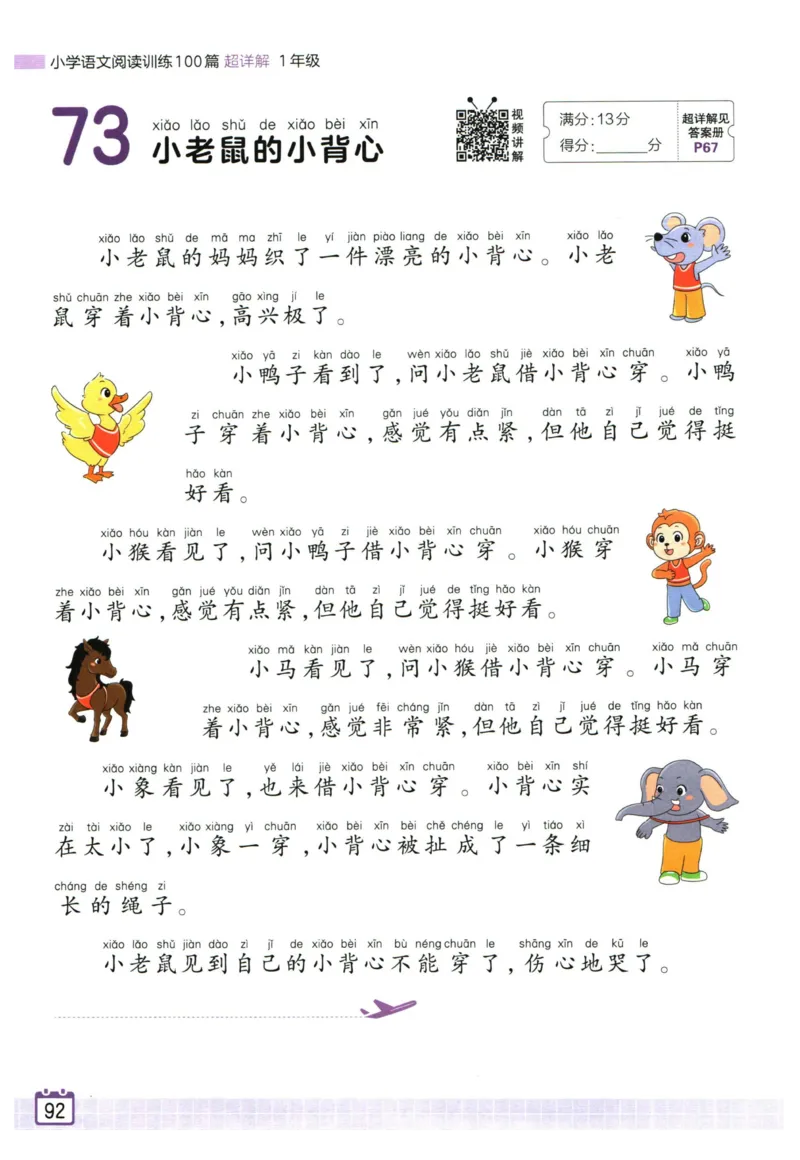 小学语文阅读训练100篇 超详解 1年级
73
xiǎo lǎo shǔ de xiǎo bèi xīn
小老鼠的小背心
视频讲解
满分:13分
得分:______分
超详解见
答案册
P67
xiǎo lǎo shǔ de mā ma zhī le yí jiàn piào liang de xiǎo bèi xīn xiǎo lǎo
小老鼠的妈妈织了一件漂亮的小背心。小老
shǔ chuān zhe xiǎo bèi xīn gāo xìng jí le
鼠穿着小背心,高兴极了。
xiǎo yā zi kàn dào le wèn xiǎo lǎo shǔ jiè xiǎo bèi xīn chuān xiǎo yā
小鸭子看到了,问小老鼠借小背心穿。小鸭
zi chuān zhe xiǎo bèi xīn gǎn jué yǒu diǎn jǐn dàn tā zì jǐ jué de tǐng
子穿着小背心,感觉有点紧,但他自己觉得挺
hǎo kàn
好看。
xiǎo hóu kàn jiàn le wèn xiǎo yā zi jiè xiǎo bèi xīn chuān xiǎo hóu chuān
小猴看见了,问小鸭子借小背心穿。小猴穿
zhe xiǎo bèi xīn gǎn jué yǒu diǎn jǐn dàn tā zì jǐ jué de tǐng hǎo kàn
着小背心,感觉有点紧,但他自己觉得挺好看。
xiǎo mǎ kàn jiàn le wèn xiǎo hóu jiè xiǎo bèi xīn chuān xiǎo mǎ chuān
小马看见了,问小猴借小背心穿。小马穿
zhe xiǎo bèi xīn gǎn jué fēi cháng jǐn dàn tā zì jǐ jué de tǐng hǎo kàn
着小背心,感觉非常紧,但他自己觉得挺好看。
xiǎo xiàng kàn jiàn le yě lái jiè xiǎo bèi xīn chuān xiǎo bèi xīn shí
小象看见了,也来借小背心穿。小背心实
zài tài xiǎo le xiǎo xiàng yì chuān xiǎo bèi xīn bèi chě chéng le yì tiáo xì
在太小了,小象一穿,小背心被扯成了一条细
cháng de shéng zi
长的绳子。
xiǎo lǎo shǔ jiàn dào zì jǐ de xiǎo bèi xīn bù néng chuān le shāng xīn de kū le
小老鼠见到自己的小背心不能穿了,伤心地哭了。
92